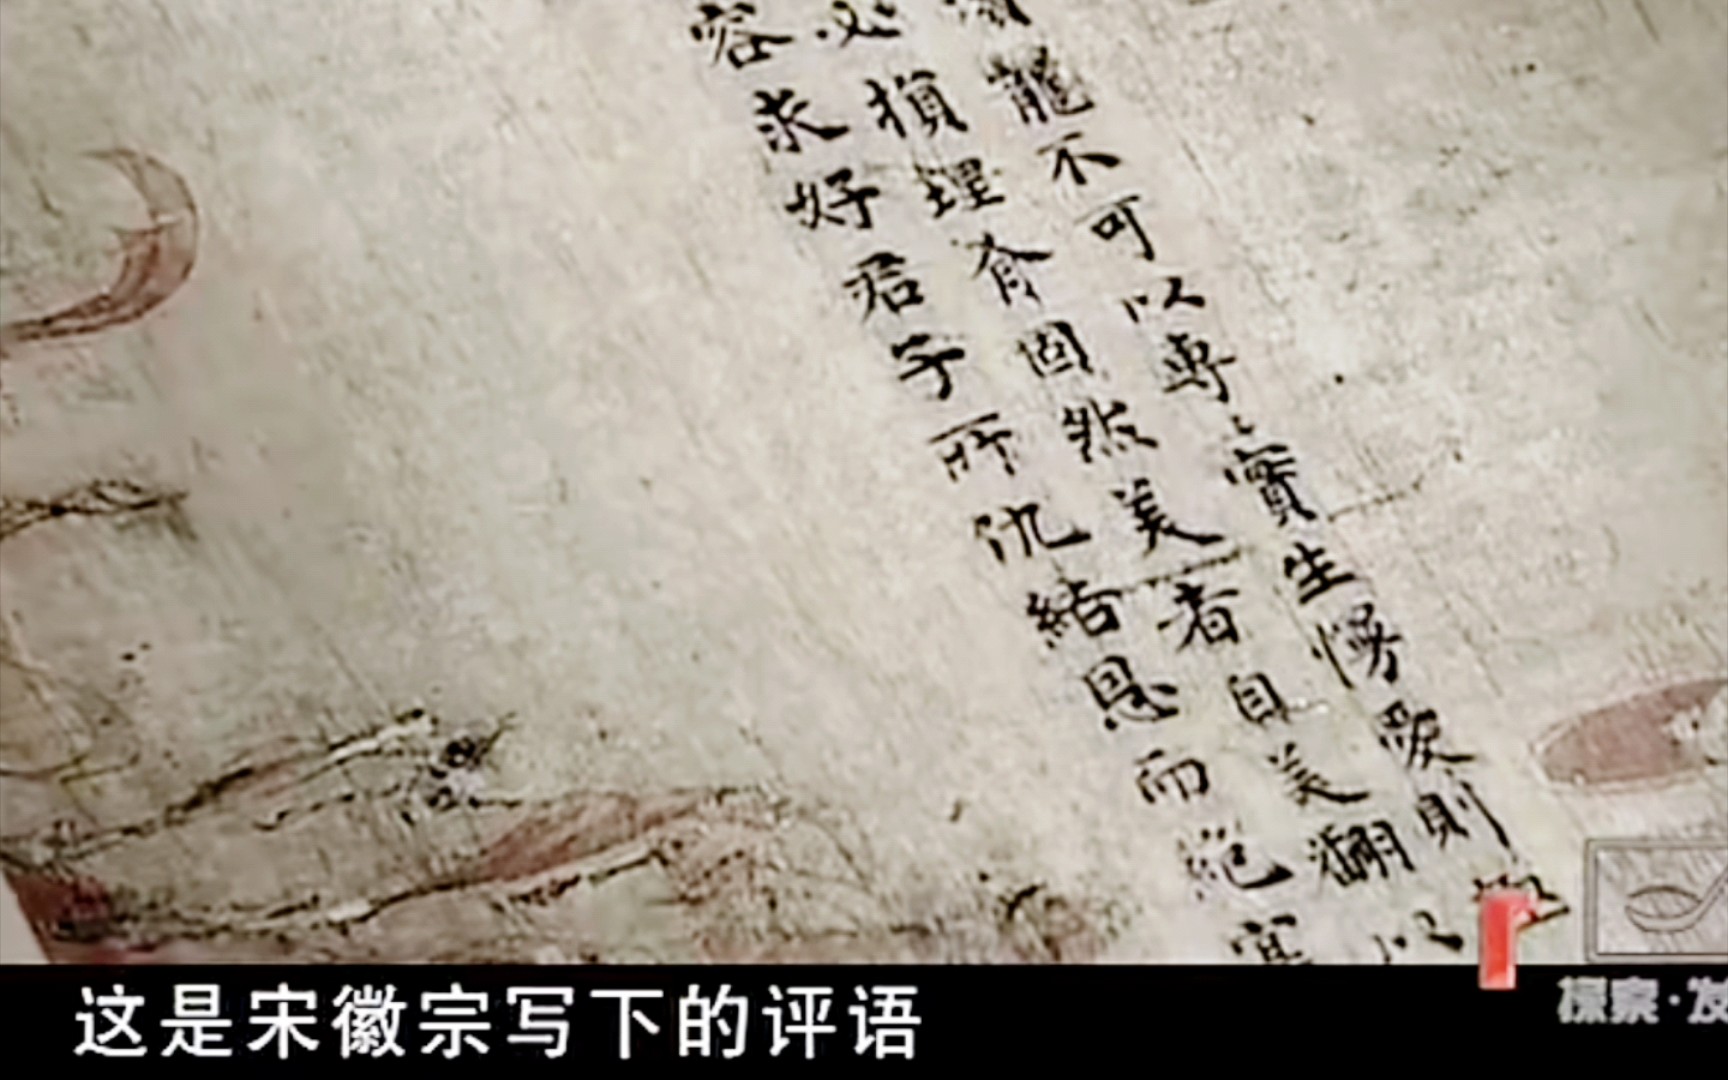 寵不可以專〻實生慢愛則
必損理有固然美者自美翩以
容求好君子所仇結恩而絕
这是宋徽宗写下的评语
探索·发